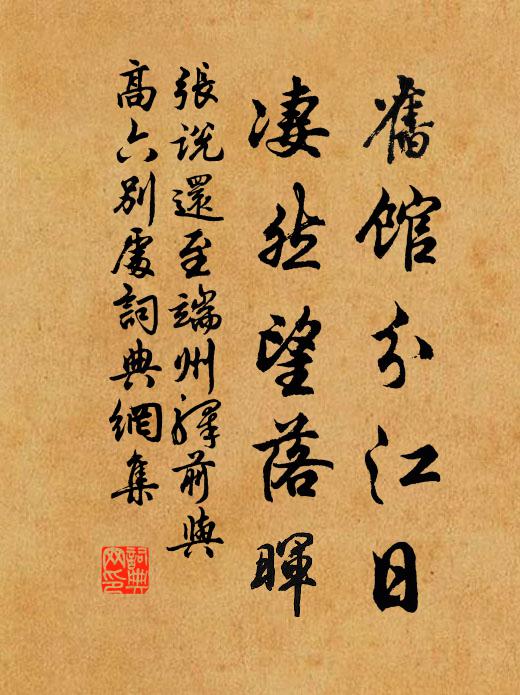 舊館分江日
淒然望落暉
張說還至端州驛前與
高六別處詞典網集
詞典
网印